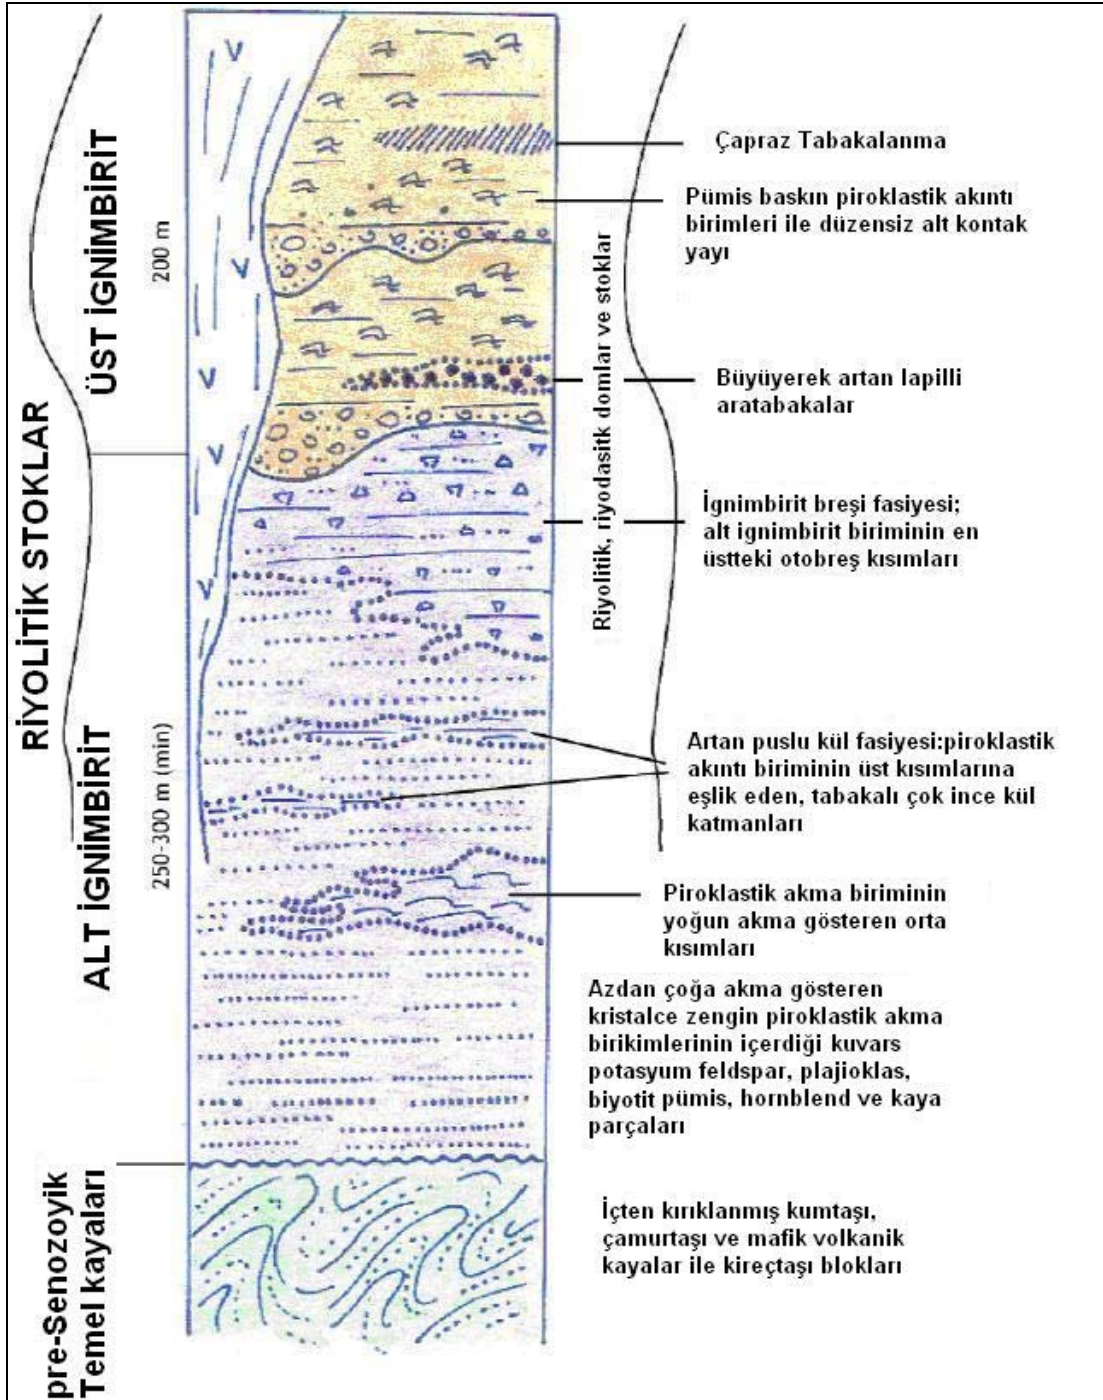 RİYOLİTİK STOKLAR
ÜST İGNİMBİRİT
200 m
ALT İGNİMBİRİT
250-300 m (min)
pre-Senozoyik
Temel kayaları
Çapraz Tabakalanma
Pümis baskın piroklastik akıntı
birimleri ile düzensiz alt kontak
yayı
Riyolitik, riyodasitk domlar ve stoklar
Büyüyerek artan lapilli
aratabakalar
İgnimbirit breşi fasiyesi;
alt ignimbirit biriminin en
üstteki otobreş kısımları
Artan puslu kül fasiyesi:piroklastik
akıntı biriminin üst kısımlarına
eşlik eden, tabakalı çok ince kül
katmanları
Piroklastik akma biriminin
yoğun akma gösteren orta
kısımları
Azdan çoğa akma gösteren
kristalce zengin piroklastik akma
birikimlerinin içerdiği kuvars
potasyum feldspar, plajioklas,
biyotit pümis, hornblend ve kaya
parçaları
İçten kırıklanmış kumtaşı,
çamurtaşı ve mafik volkanik
kayalar ile kireçtaşı blokları